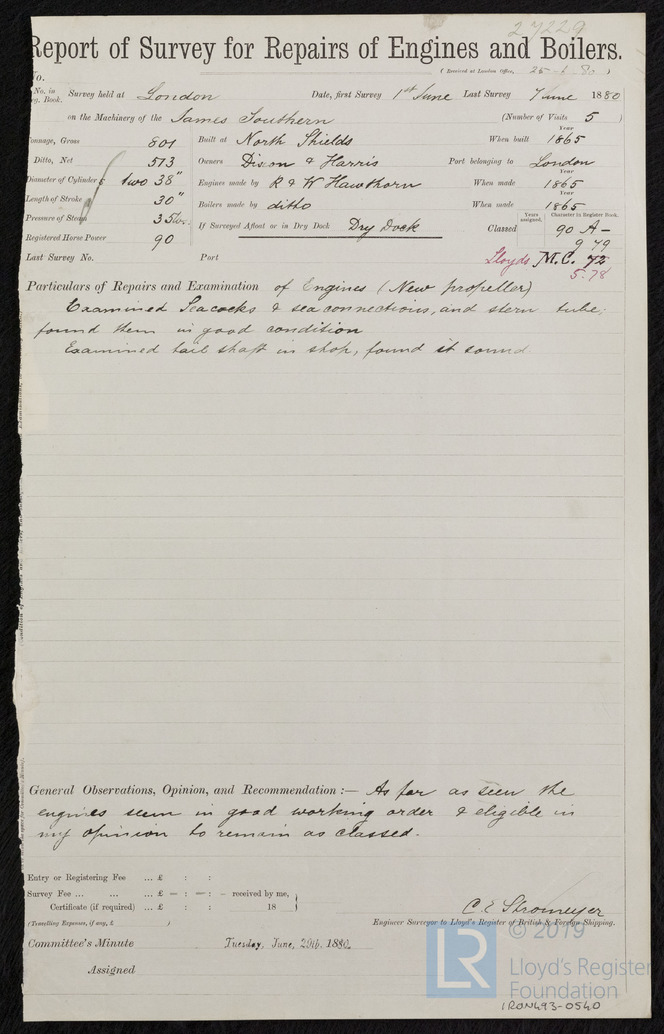 27229
Report of Survey for Repairs of Engines and Boilers.
No. (Received at London Office, 25-6-80)
No. in Reg. Book. Survey held at London Date, first Survey 1st June Last Survey 7 June 1880
on the Machinery of the James Southern (Number of Visits 5)
Tonnage, Gross 801 Built at North Shields When built Year 1865
Ditto, Net 513 Owners Dixon & Harris Port belonging to London
Diameter of Cylinders two 38" Engines made by R & W Hawthorn When made Year 1865
Length of Stroke 30" Boilers made by ditto When made Year 1865
Pressure of Steam 35 lbs. If Surveyed Afloat or in Dry Dock Dry Dock Years assigned. Character in Register Book.
Registered Horse Power 90 Classed 90 A-
9 79
Last Survey No. Port Lloyds M.C. 72
5.78
Particulars of Repairs and Examination of Engines (New propeller)
Examined Seacocks & sea connections, and stern tube;
found them in good condition
Examined tail shaft in shop, found it sound
General Observations, Opinion, and Recommendation :— As far as seen the
engines seem in good working order & eligible in
my opinion to remain as classed.
Entry or Registering Fee ... £ : :
Survey Fee ... ... ... £ — : — : — received by me,
Certificate (if required) ... £ : : 18
C. E. Stromeyer
(Travelling Expenses, if any, £ ) Engineer Surveyor to Lloyd's Register of British & Foreign Shipping.
Committee's Minute Tuesday, June, 29th, 1880.
Assigned
© 2019
LR
Lloyd's Register
Foundation
IRON493-0540